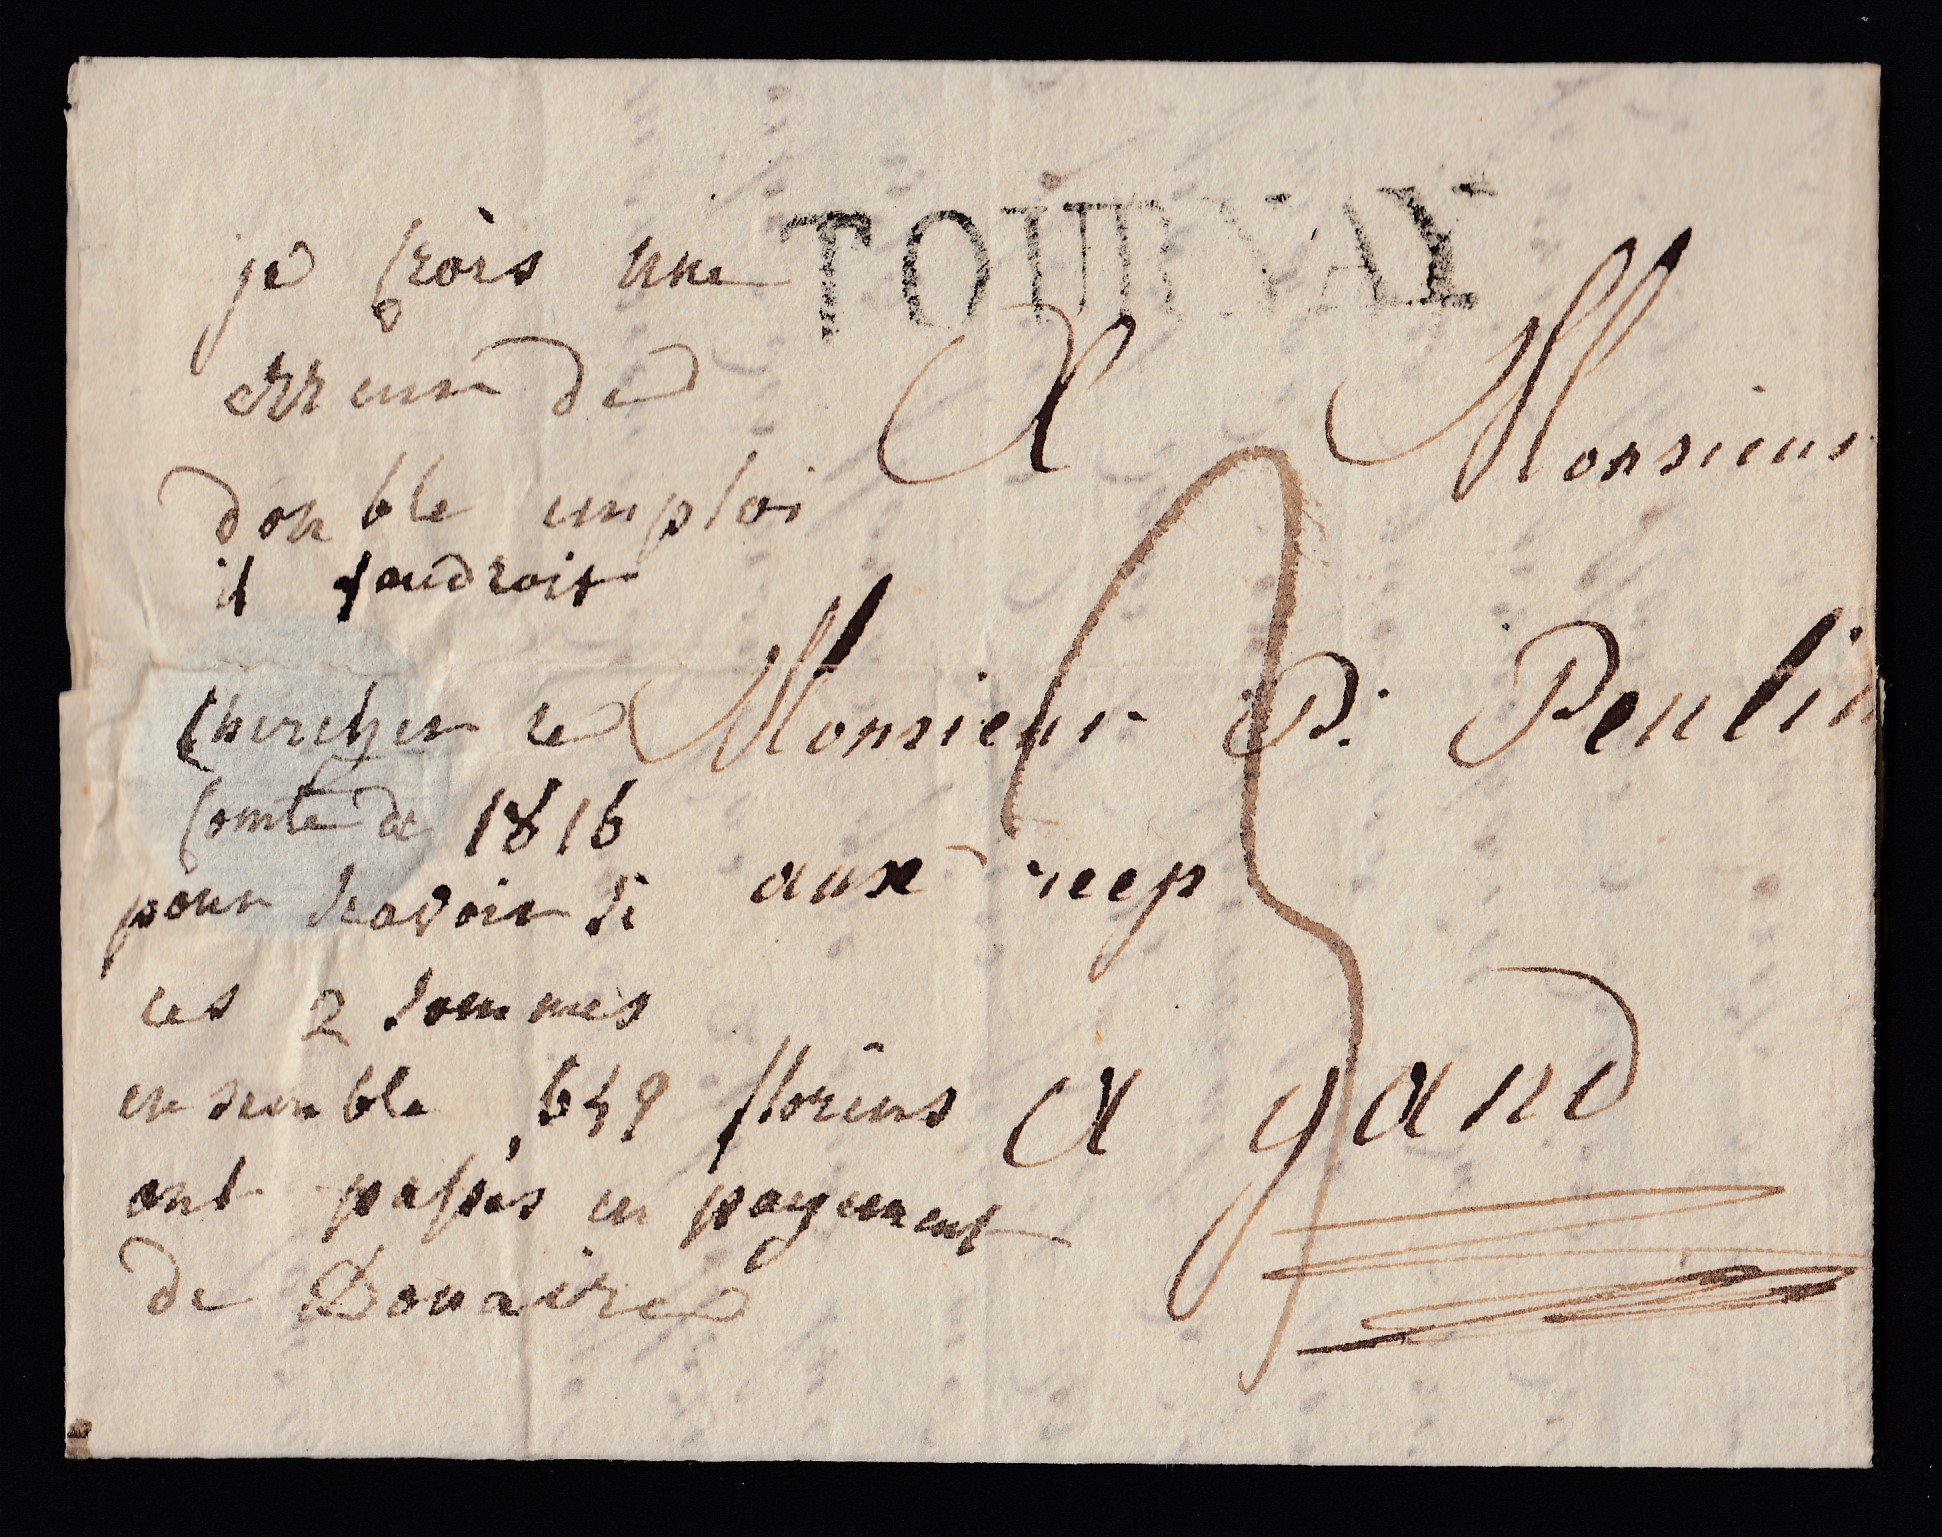 TOURNAY
je crois une
erreur de
double emploi
il faudroit
chercher le
comte de 1816
pour scavoir si
ces 2 sommes
ensemble 649 florins
ont passés en payement
de Douaire
A Monsieur
Monsieur P. Peulin
aux reep
3
a gand